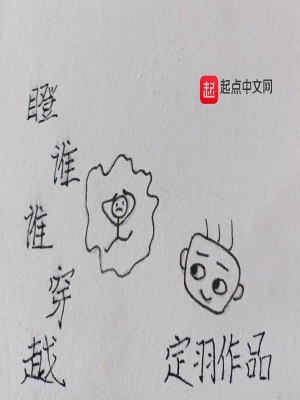 瞪谁谁穿越
起点中文网
定羽作品